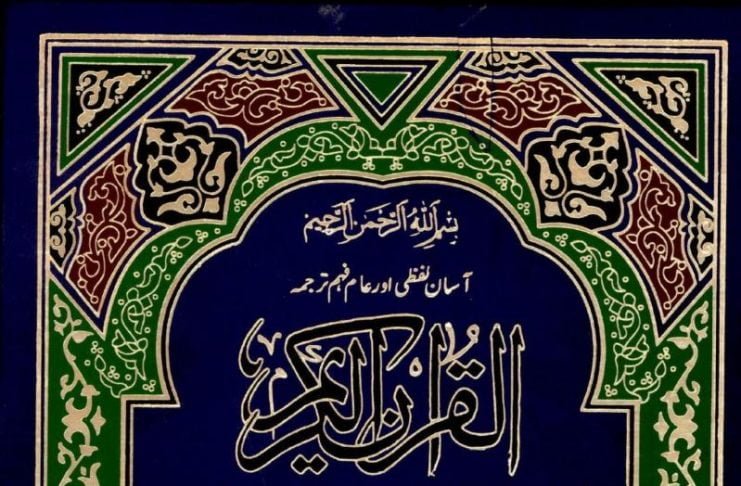 بِسْمِ اللهِ الرَّحْمٰنِ الرَّحِيْمِ
آسان لفظی اور عام فہم ترجمہ
القرآن الكريم